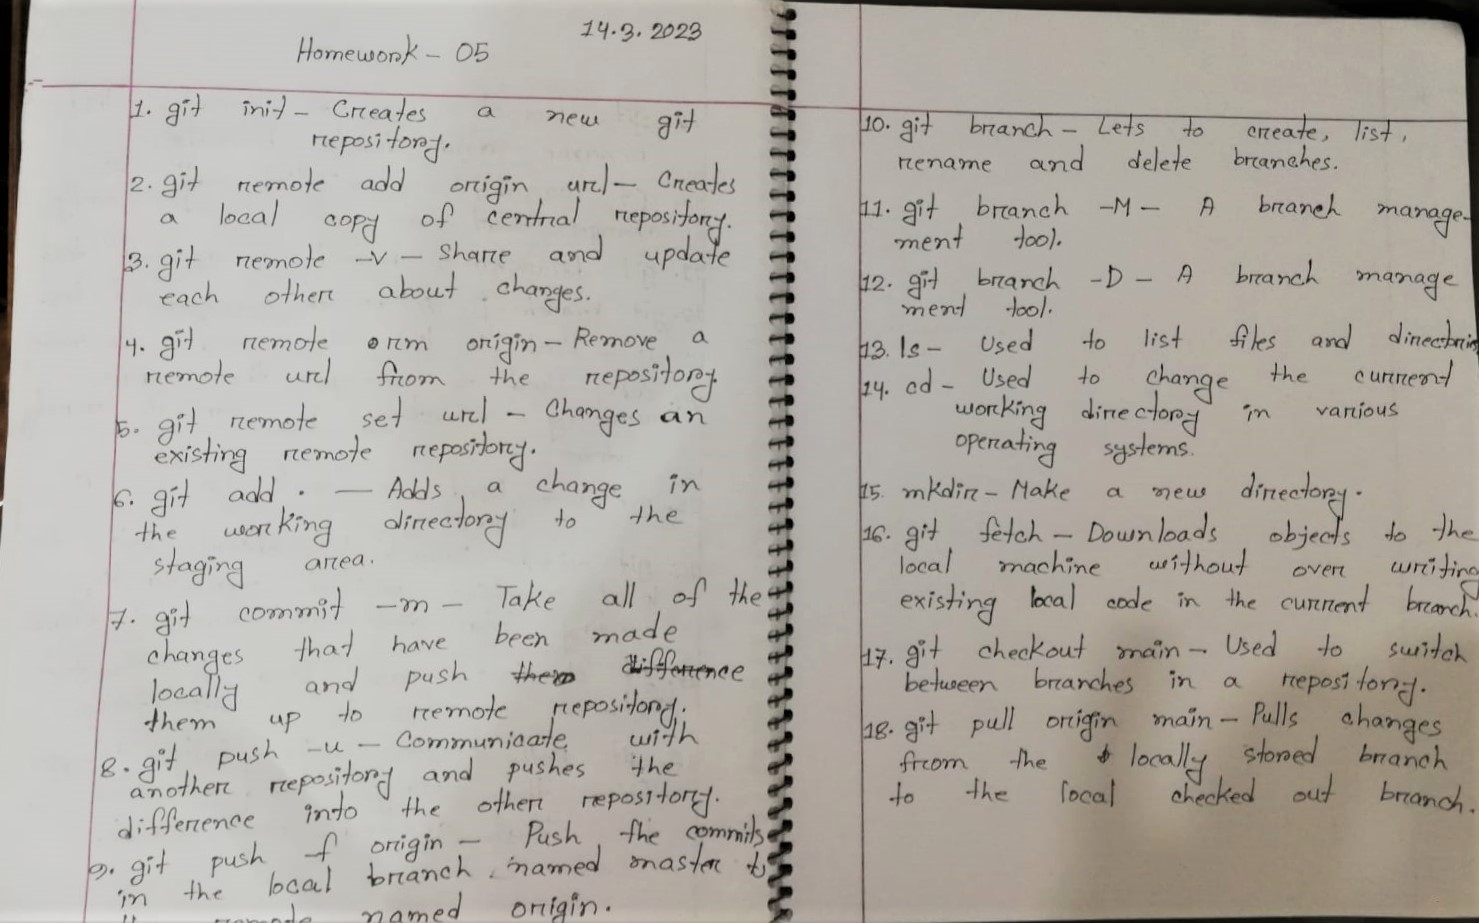 14.3.2023
Homework - 05
1. git init - Creates a new git
repository.
2. git remote add origin url - Creates
a local copy of central repository.
3. git remote -v - Share and update
each other about changes.
4. git remote rm origin - Remove a
remote url from the repository
5. git remote set url - Changes an
existing remote repository.
6. git add . - Adds a change in
the working directory to the
staging area.
7. git commit -m - Take all of the
changes that have been made
locally and push
them up to remote repository.
8. git push -u - Communicate with
another repository and pushes the
difference into the other repository.
9. git push -f origin - Push the commits
in the local branch named master to
remote named origin.
10. git branch - Lets to create, list,
rename and delete branches.
11. git branch -M - A branch manage-
ment tool.
12. git branch -D - A branch manage
ment tool.
13. ls - Used to list files and
14. cd - Used to change the current
working directory in various
operating systems.
15. mkdir - Make a new directory.
16. git fetch - Downloads objects to the
local machine without over writing
existing local code in the current branch.
17. git checkout main - Used to switch
between branches in a repository.
18. git pull origin main - Pulls changes
from the locally stored branch
to the local checked out branch.